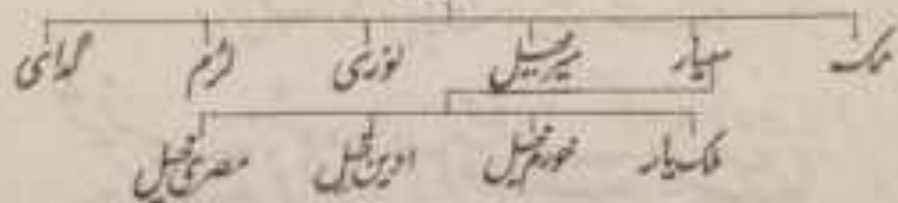 مک میار میرخیل نوری لژم گدای
ملک یار خورم خیل ادین خیل مصری خیل